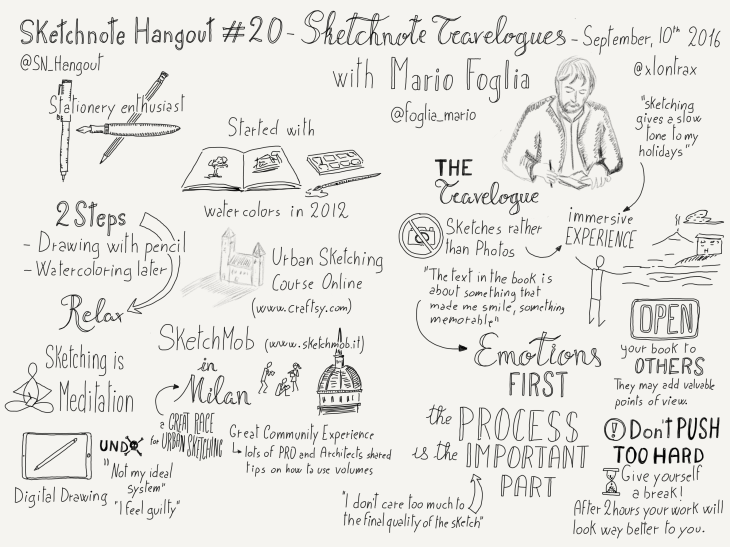 Sketchnote Hangout #20 - Sketchnote Travelogues - September, 10th 2016
@SN_Hangout
with Mario Foglia
@xlontrax
@foglia_mario
Stationery enthusiast
"sketching
gives a slow
tone to my
holidays"
Started with
watercolors in 2012
THE
Travelogue
Sketches rather
than Photos
immersive
EXPERIENCE
2 Steps
- Drawing with pencil
- Watercoloring later
Relax
Urban Sketching
Course Online
(www.craftsy.com)
"The text in the book is
about something that
made me smile, something
memorable"
Emotions
FIRST
OPEN
your book to
OTHERS
They may add valuable
points of view.
SketchMob (www.sketchmob.it)
in
Milan
a GREAT PLACE
for URBAN SKETCHING
Great Community Experience
lots of PRO and Architects shared
tips on how to use volumes
Sketching is
Meditation
Digital Drawing
UNDO
"Not my ideal
system"
"I feel guilty"
the PROCESS
is the IMPORTANT
PART
"I don't care too much to
the final quality of the sketch"
! Don't PUSH
TOO HARD
Give yourself
a break!
After 2 hours your work will
look way better to you.